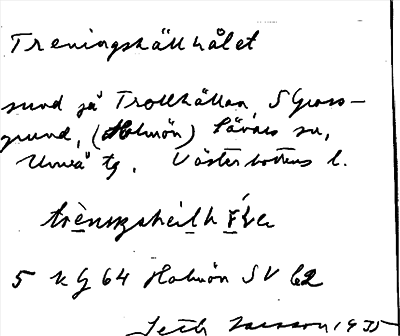 Treningshällhålet
sund på Trollhällan, S Gross-
grund, (Holmön) Sävars sn,
Umeå tg. Västerbottens l.
5 k G 64 Holmön SV 62
Seth Jansson 1935